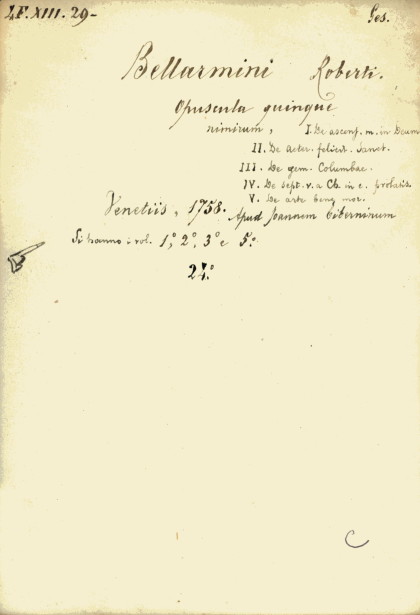 4.F.XIII.29- Ges.
Bellarmini Roberti.
Opuscula quinque
nimirum, I. De ascens. m. in Deum
II. De aeter. felicit. sanct.
III. De gem. Columbae.
IV. De sept. v. a Ch. in c. prolatis.
V. De arte bene mor.
Venetiis, 1758. Apud Joannem Tiberninum
Si hanno i vol. 1º, 2º, 3º e 5º.
24º
C